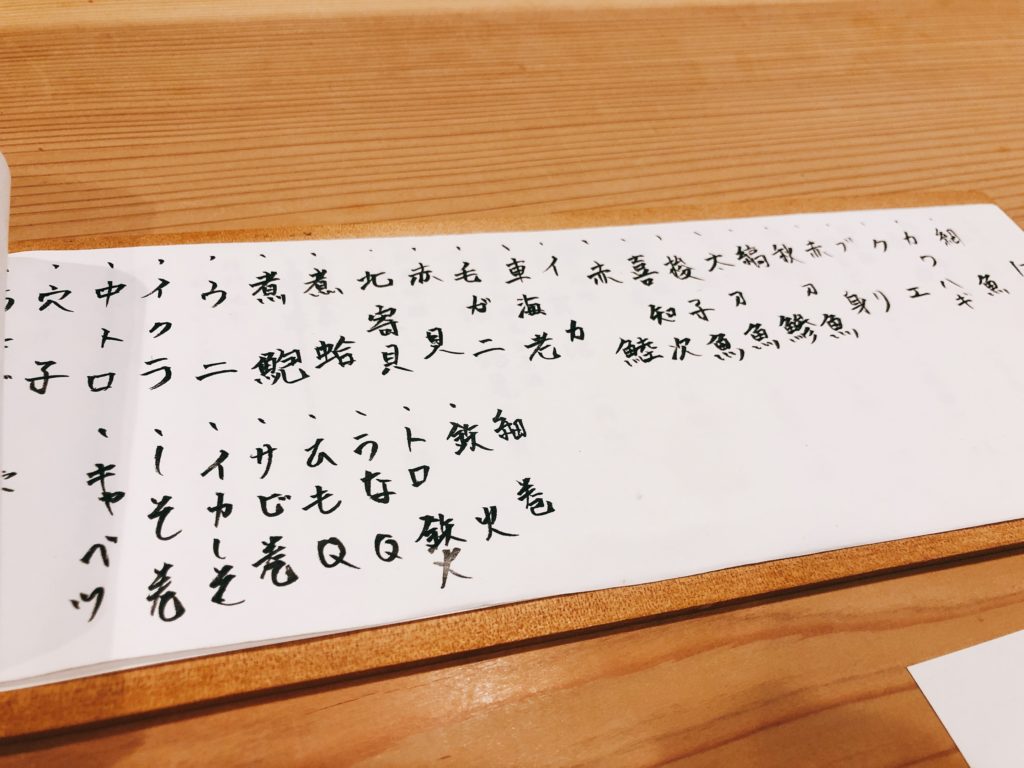 細魚
、カワハギ
、クエ
、ブリ
、赤身
、秋刀魚
、縞鯵
、太刀魚
、梭子魚
、喜知次
、赤鯥
、イカ
、車海老
、毛ガニ
、赤貝
、北寄貝
、煮蛤
、煮鮑
、ウニ
、イクラ
、中トロ
、穴子
細巻
、鉄火
、トロ鉄火
、うなQ
、ひもQ
、サビ巻
、イカしそ
、しそ巻
、キャベツ